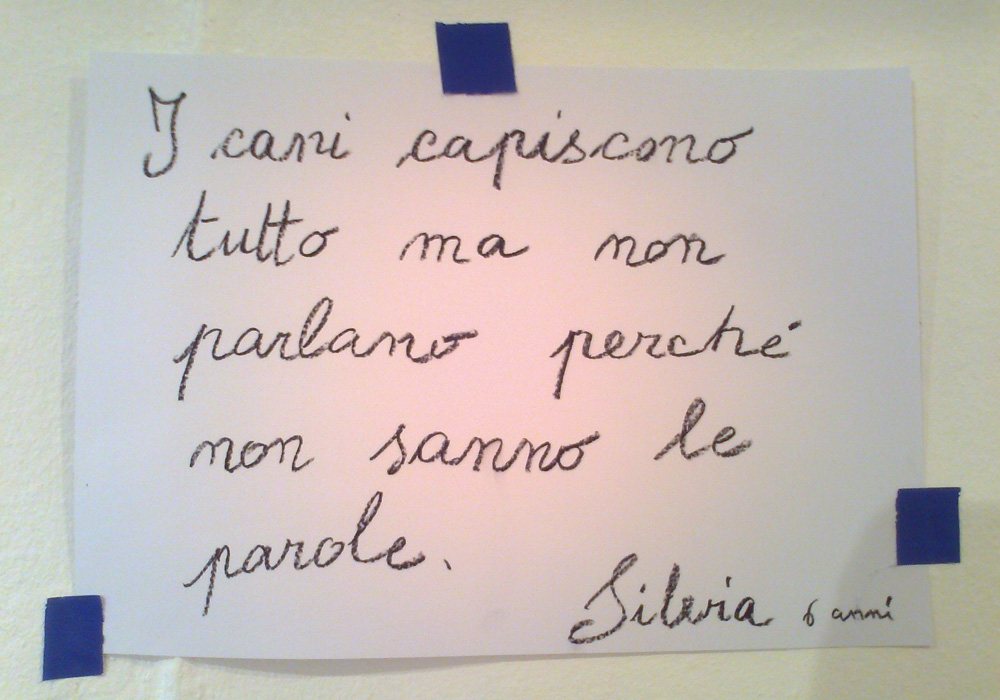 I cani capiscono
tutto ma non
parlano perché
non sanno le
parole.
Silvia 6 anni